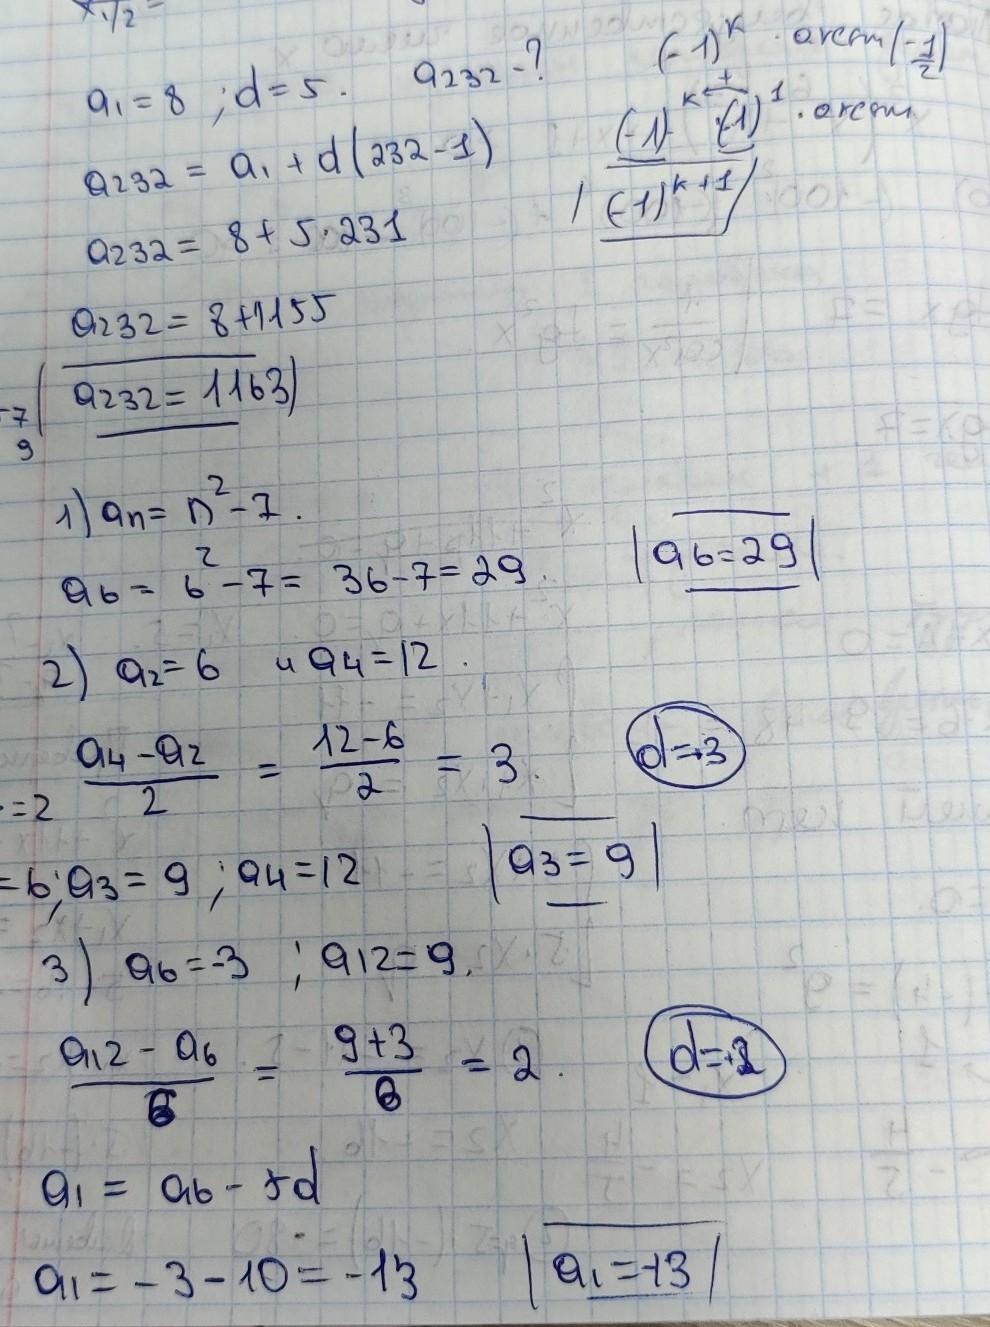 x₁/₂ =
a₁ = 8 ; d = 5. a₂₃₂ - ?
(-1)ᵏ · arcsin(-1/2)
a₂₃₂ = a₁ + d(232-1)
(-1)ᵏ · (-1)¹ · arcsin
+
a₂₃₂ = 8 + 5 · 231
(-1)ᵏ⁺¹
a₂₃₂ = 8+1155
a₂₃₂ = 1163
-7
9
1) aₙ = n² - 7.
a₆ = 6² - 7 = 36 - 7 = 29. a₆ = 29
2) a₂ = 6 и a₄ = 12.
(a₄ - a₂)/2 = (12 - 6)/2 = 3. d = +3
= 2
= 6; a₃ = 9 ; a₄ = 12 a₃ = 9
3) a₆ = -3 ; a₁₂ = 9.
(a₁₂ - a₆)/6 = (9 + 3)/6 = 2. d = +2
a₁ = a₆ - 5d
a₁ = -3 - 10 = -13 a₁ = -13